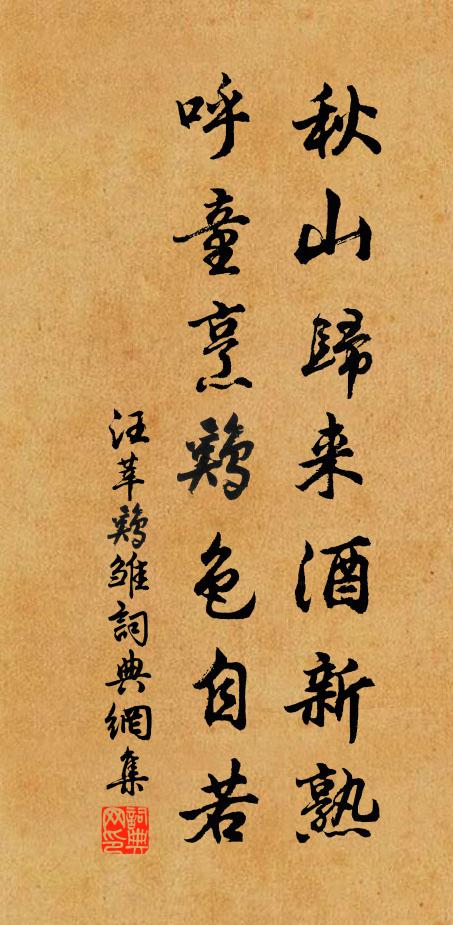 秋山歸来酒新熟
呼童烹鷄色自若
汪莘鷄雛詞典網集
詞典網印